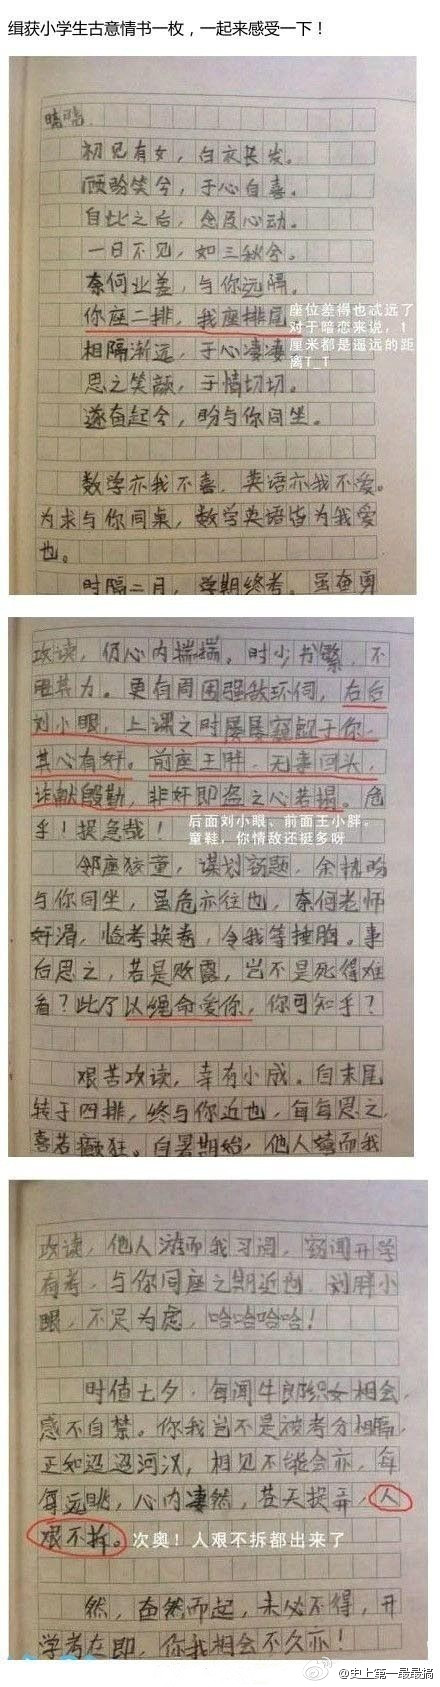 缉获小学生古意情书一枚，一起来感受一下！
初见有女，白衣长发。
顾盼笑兮，于心自喜。
自此之后，念及心动。
一日不见，如三秋兮。
奈何业差，与你远隔。
你座二排，我座排尾
座位差得也忒远了
对于暗恋来说，1
厘米都是遥远的距
离T_T
相隔渐远，于心凄凄
思之笑颜，于情切切。
遂奋起兮，盼与你同坐。
数学亦我不喜，英语亦我不爱。
为求与你同桌，数学英语皆为我爱
也。
时隔二月，学期终考。虽奋勇
攻读，仍心内揣揣。时少书繁，不
胜其力。更有周围强敌环伺，右后
刘小眼，上课之时屡屡窥觑于你，
其心有奸。前座王胖，无事回头，
诈献殷勤，非奸即盗之心若揭。危
乎！提急哉！
后面刘小眼、前面王小胖。
童鞋，你情敌还挺多呀
邻座狡童，谋划窃题，余执盼
与你同坐，虽危亦往也，奈何老师
奸滑，临考换卷，令我等捶胸。事
后思之，若是败露，岂不是死得难
看？此乃以绳命爱你，你可知乎？
艰苦攻读，幸有小成。自末尾
转于四排，终与你近也，每每思之，
喜若癫狂。自暑期始，他人嬉而我
攻读，他人游而我习阅，窃闻开学
有考，与你同座之期近也，刘胖小
眼，不足为虑，哈哈哈哈！
时值七夕，每闻牛郎织女相会，
感不自禁。你我岂不是被考分相隔，
正如迢迢河汉，相见不能会亦，每
每远眺，心内凄然，苍天捉弄，人
艰不拆。
次奥！人艰不拆都出来了
然，奋然而起，未必不得，开
学考在即，你我相会不久亦！
@史上第一最最搞